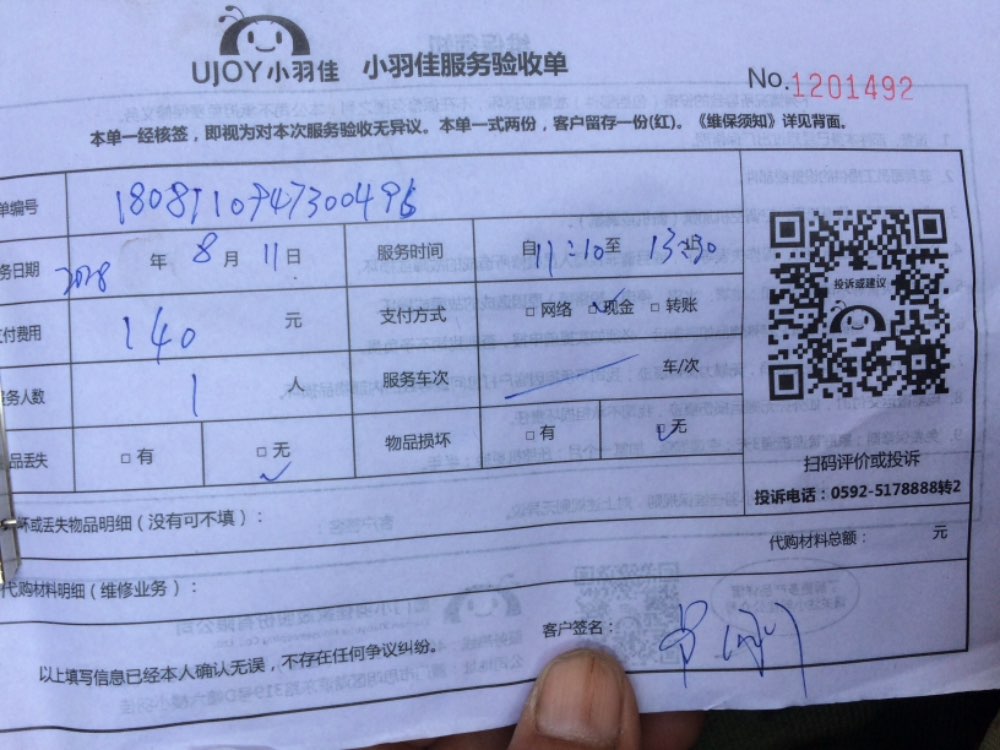 UJOY小羽佳 小羽佳服务验收单
No.1201492
本单一经核签，即视为对本次服务验收无异议。本单一式两份，客户留存一份(红)。《维保须知》详见背面。
单编号
务日期 2018 年 8 月 11 日 服务时间 自 11:10 至 13:30
投诉或建议
支付费用 140 元 支付方式 □ 网络 □ 现金 □ 转账
务人数 1 人 服务车次 车/次
品丢失 □ 有 □ 无 物品损坏 □ 有 □ 无
扫码评价或投诉
投诉电话：0592-5178888转2
坏或丢失物品明细（没有可不填）：
代购材料总额： 元
代购材料明细（维修业务）：
客户签名：
以上填写信息已经本人确认无误，不存在任何争议纠纷。